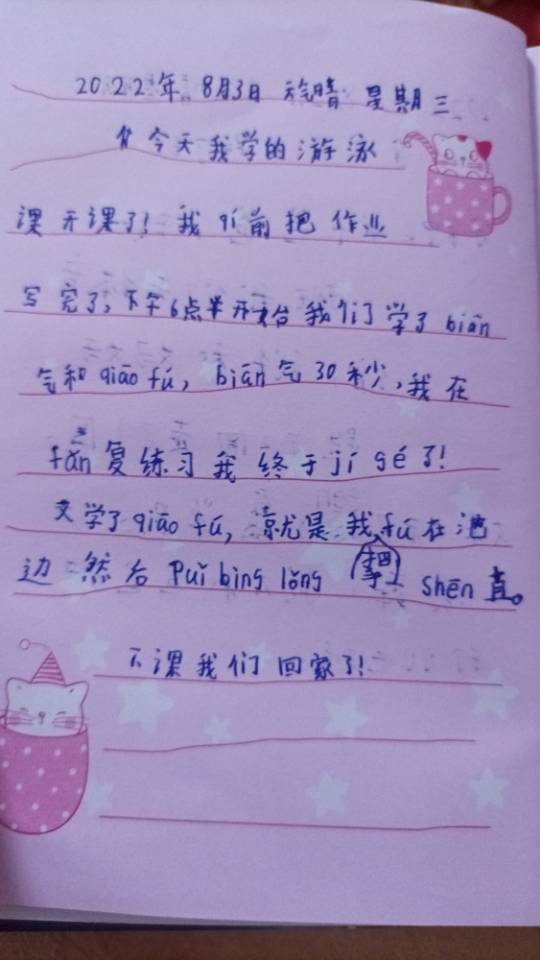 2022年 8月3日 天气晴 星期三
今天我学的游泳
课开课了！我 qí前把作业
写完了，下午6点半开始我们学了 biān
气和 qiāo fú，biān 气30秒，我在
fǎn 复练习我终于 jí gé 了！
又学了 qiāo fú，就是我 fú 在池
边然后 Puǐ bìng lǒng 掌 shēn 直。
下课我们回家了！